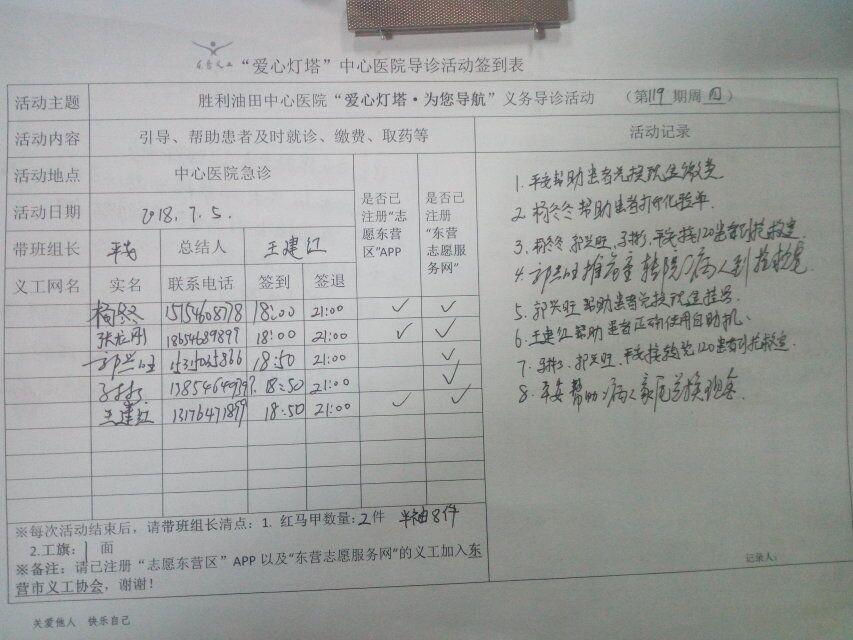 东营义工 “爱心灯塔”中心医院导诊活动签到表
活动主题 胜利油田中心医院“爱心灯塔·为您导航”义务导诊活动 （第119期周四）
活动内容 引导、帮助患者及时就诊、缴费、取药等 活动记录
活动地点 中心医院急诊 是否已注册“志愿东营区”APP 是否已注册“东营志愿服务网”
活动日期 2018.7.5.
带班组长 总结人 王建红
义工网名 实名 联系电话 签到 签退
杨冬冬 18:00 21:00 ✓ ✓
18654689899 18:00 21:00 ✓ ✓
18:50 21:00 ✓
18:50 21:00 ✓
王建红 13176471899 18:50 21:00 ✓ ✓
1. 帮助患者兑换现金缴费
2. 杨冬冬帮助患者打印化验单.
3. 杨冬冬 郭兴旺 120患者到抢救室.
4. 郭兴旺推病重转院病人到抢救室
5. 郭兴旺帮助患者兑换现金挂号
6. 王建红帮助患者正确使用自助机.
7. 郭兴旺 120患者到抢救室.
8. 平安帮助病人家属兑换现金.
※每次活动结束后，请带班组长清点：1. 红马甲数量：2件 半袖8件
2.工旗：1 面
※备注：请已注册“志愿东营区”APP以及“东营志愿服务网”的义工加入东
营市义工协会，谢谢！
记录人：
关爱他人 快乐自己